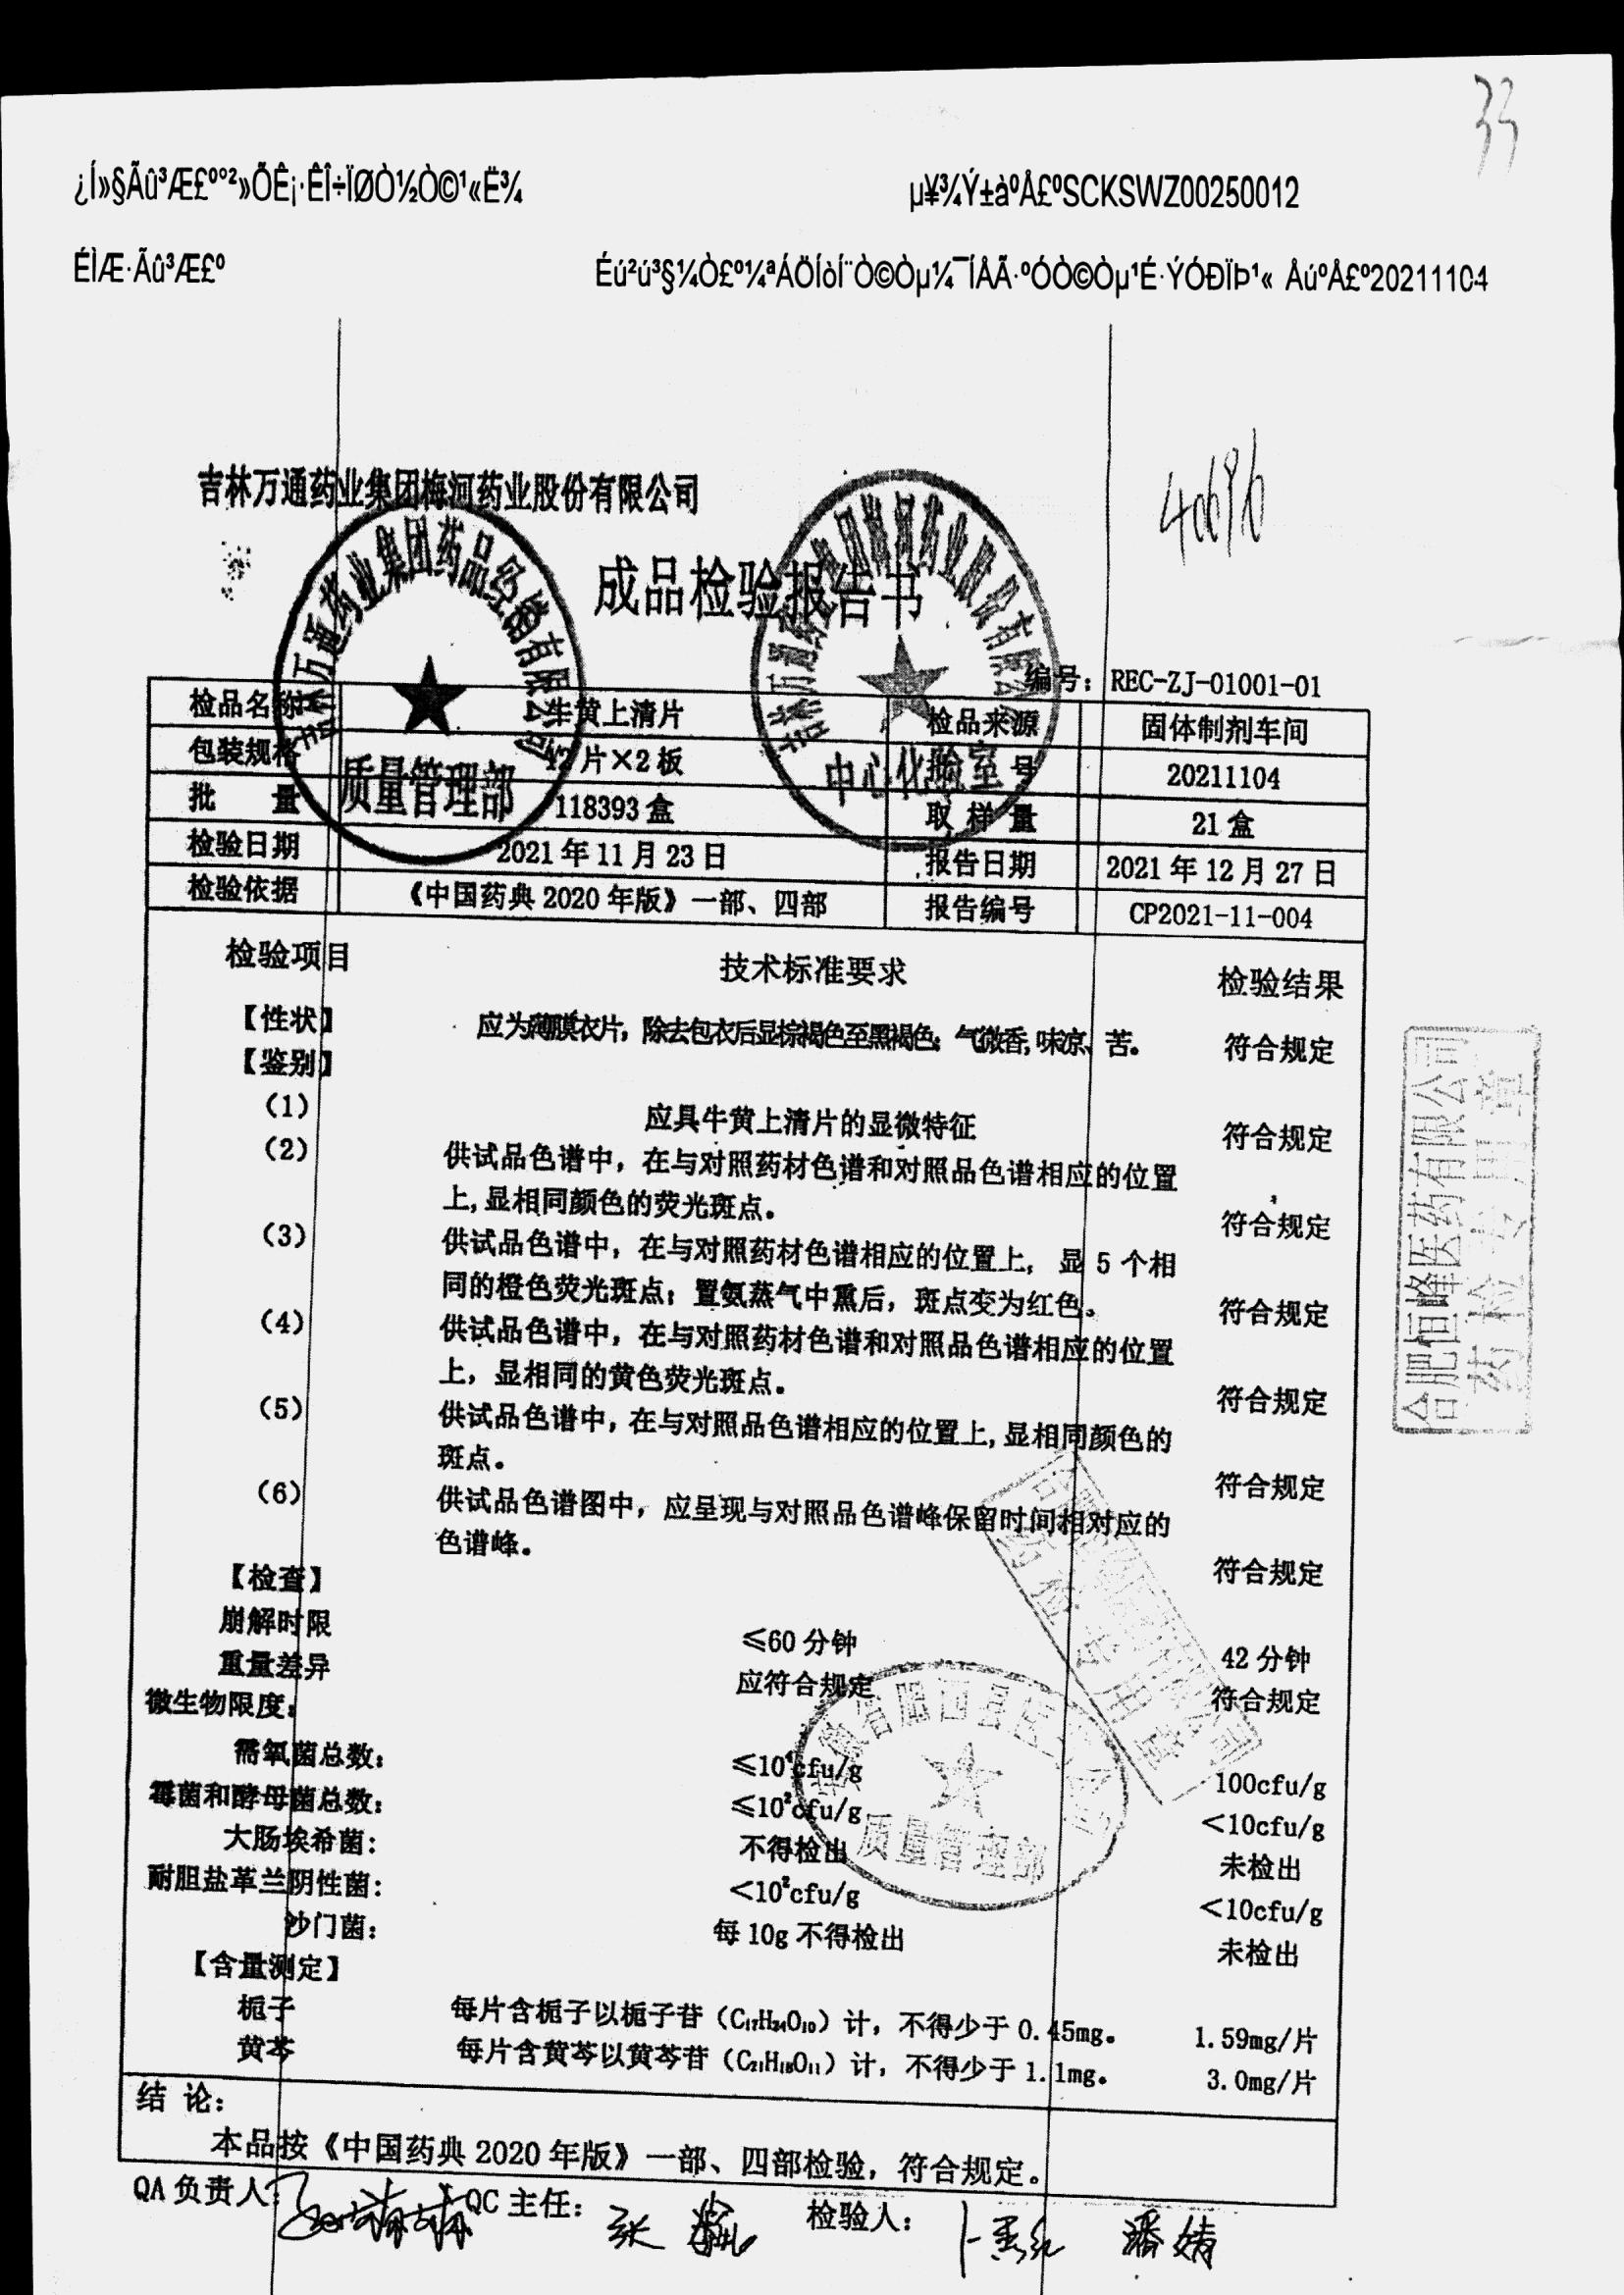 ¿Í»§Ãû³Æ£º°²»ÕÊ¡·ÊÎ÷ÏØÒ½Ò©¹«Ë¾ µ¥¾Ý±àºÅ£ºSCKSWZ00250012
ÉÌÆ·Ãû³Æ£º Éú²ú³§¼Ò£º¼ªÁÖÍòÍ¨Ò©Òµ¼¯ÍÅÃ·ºÓÒ©Òµ¹É·ÝÓÐÏÞ¹« ÅúºÅ£º20211104
吉林万通药业集团梅河药业股份有限公司
成品检验报告书
吉林万通药业集团药品经销有限公司
质量管理部
吉林万通药业集团梅河药业股份有限公司
中心化验室
编号：REC-ZJ-01001-01
检品名称 牛黄上清片 检品来源 固体制剂车间
包装规格 12 片×2 板 批 号 20211104
批 量 118393 盒 取 样 量 21 盒
检验日期 2021 年 11 月 23 日 报告日期 2021 年 12 月 27 日
检验依据 《中国药典 2020 年版》一部、四部 报告编号 CP2021-11-004
检验项目 技术标准要求 检验结果
【性状】 应为薄膜衣片，除去包衣后显棕褐色至黑褐色；气微香，味凉、苦。 符合规定
【鉴别】
（1） 应具牛黄上清片的显微特征 符合规定
（2） 供试品色谱中，在与对照药材色谱和对照品色谱相应的位置
上，显相同颜色的荧光斑点。 符合规定
（3） 供试品色谱中，在与对照药材色谱相应的位置上，显 5 个相
同的橙色荧光斑点；置氨蒸气中熏后，斑点变为红色。 符合规定
（4） 供试品色谱中，在与对照药材色谱和对照品色谱相应的位置
上，显相同的黄色荧光斑点。 符合规定
（5） 供试品色谱中，在与对照品色谱相应的位置上，显相同颜色的
斑点。 符合规定
（6） 供试品色谱图中，应呈现与对照品色谱峰保留时间相对应的
色谱峰。 符合规定
【检查】
崩解时限 ≤60 分钟 42 分钟
重量差异 应符合规定 符合规定
微生物限度：
需氧菌总数： ≤10⁴cfu/g 100cfu/g
霉菌和酵母菌总数： ≤10²cfu/g <10cfu/g
大肠埃希菌： 不得检出 未检出
耐胆盐革兰阴性菌： <10²cfu/g <10cfu/g
沙门菌： 每 10g 不得检出 未检出
【含量测定】
栀子 每片含栀子以栀子苷（C₁₇H₂₄O₁₀）计，不得少于 0.45mg。 1.59mg/片
黄芩 每片含黄芩以黄芩苷（C₂₁H₁₈O₁₁）计，不得少于 1.1mg。 3.0mg/片
结 论：
本品按《中国药典 2020 年版》一部、四部检验，符合规定。
QA 负责人： QC 主任： 张 检验人： 潘婧
合肥恒峰医药有限公司
药检专用章
安徽省肥西县医药公司
质量管理部